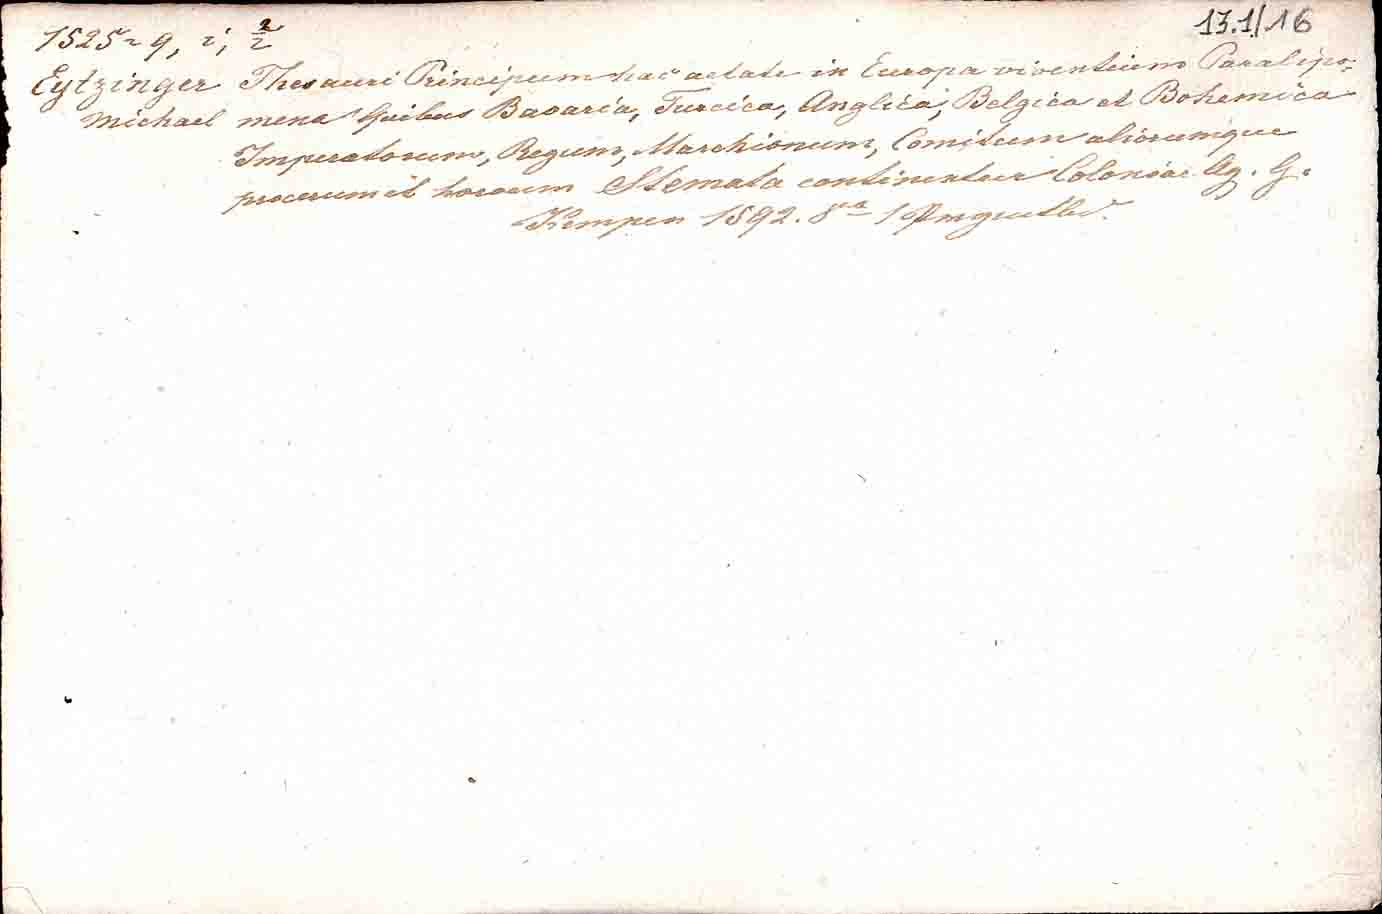 1525 ~ 9, i; 2/2
13.1/16
Eytzinger Thesauri Principum hac aetate in Europa viventium Paralipo-
Michael mena Quibus Bavarica, Turcica, Anglica, Belgica et Bohemica
Imperatorum, Regum, Marchionum, Comitum aliorumque
procerum Stemata continentur Coloniae Ag. G.
Kempen 1592. 8ra 1